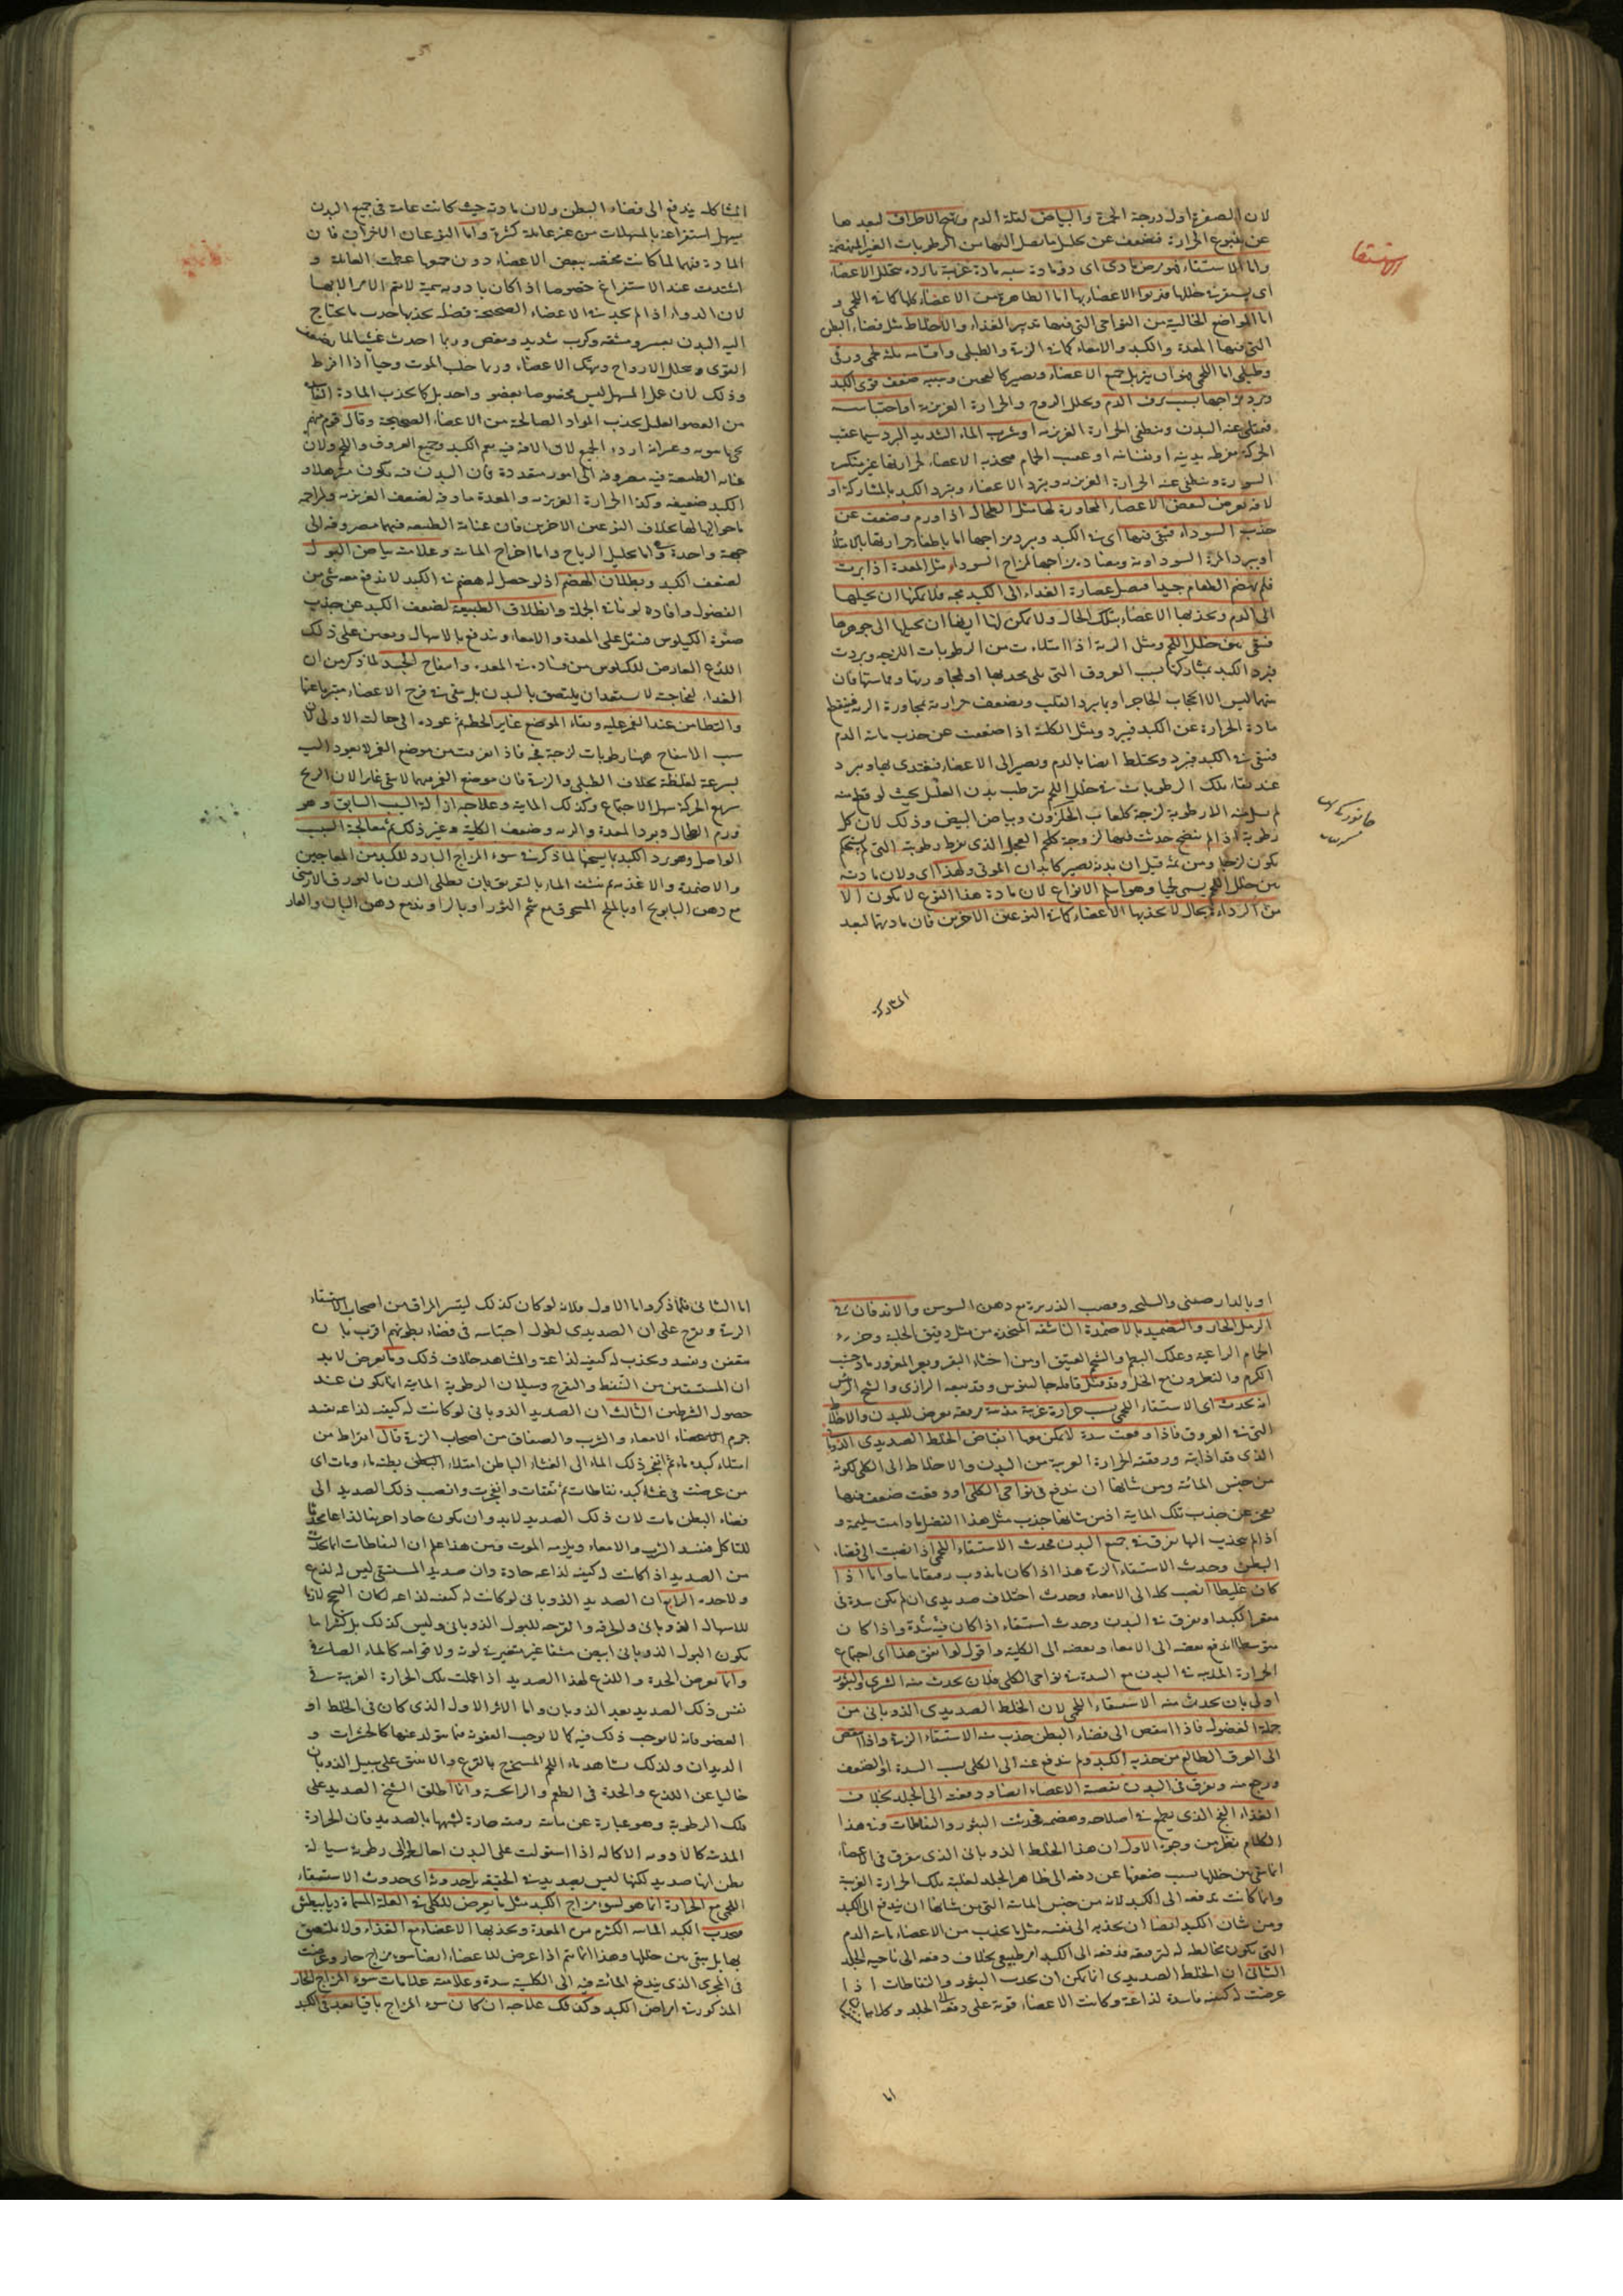 لان الصفرة اول درجة الحمرة والبياض لقلة الدم وتهيج الاطراف لبعدها
عن ينبوع الحرارة فتضعف عن تحليل ما يصل اليها من الرطوبات الغير المنهضمة
واما الاستسقاء فهو مرض مادى اى ذو مادة سببه مادة غريبة باردة تتخلل الاعضاء
استسقا
اما المواضع الخالية من النواحى التى فيها تدبير الغذاء والاخلاط مثل فضاء البطن
التى فيها المعدة والكبد والامعاء كما فى الزقى والطبلى واقسامه ثلثة لحمى وزقى
وطبلى اما اللحمى فهو ان يتربل جميع الاعضاء ويصير كالعجين وسببه ضعف قوى الكبد
وبرد مزاجها بسبب نزف الدم وتحلل الروح والحرارة الغريزية او احتباسه
فيمتلى عنه البدن وتنطفى الحرارة الغريزية او شرب الماء الشديد البرد سيما عقيب
الحركة مفرطة بدنية او نفسانية او عقيب الحمام فتجذبه الاعضاء لحرارتها غير منكسر
السورة وتنطفى عنه الحرارة الغريزية وتبرد الاعضاء ويبرد الكبد بالمشاركة او
لآفة تعرض لبعض الاعضاء المجاورة لها مثل الطحال اذا ورم وضعف عن
جذب السوداء فتبقى فيها اى فى الكبد ويبرد مزاجها اما باطفاء حرارتها بالامتلاء
او ببرد المرة السوداوية ومضادة مزاجها لمزاج السوداء ومثل المعدة اذا بردت
فلم تهضم الطعام جيدا فتصل عصارة الغذاء الى الكبد فجة فلا يمكنها ان تحيلها
الى الدم وتجذبها الاعضاء بتلك الحال ولا يمكن لها ايضا ان تحيلها الى جوهرها
فتبقى بين خلل اللحم ومثل الرية اذا امتلاءت من الرطوبات اللزجة وبردت
فبرد الكبد بمشاركتها بسبب العروق التى على محدبها او لمجاورتها ومماستها فان
بينهما ليس الا الحجاب الحاجز او بان يبرد القلب وتضعف حرارته لمجاورة الرية فينقطع
مادة الحرارة عن الكبد فيبرد ومثل الكلية اذا ضعفت عن جذب مائية الدم
فتبقى فى الكبد فيبرد وتختلط ايضا بالدم ويصير الى الاعضاء فتغتدى بها ويبرد
عند بقاء تلك الرطوبات فى خلل اللحم يترطب بدن العليل بحيث لو قطع منه
لم يسل منه الا رطوبة لزجة كلعاب الحلزون وبياض البيض وذلك لان كل
رطوبة اذا لم تنضج حدثت فيها لزوجة كلحم العجل الذى يفرط رطوبته التى لم تستحكم
تكون لزجا ومن ثمة قيل ان بدنه يصير كابدان الموتى ولهذا اى ولان مادته
بين خلل اللحم يسمى لحميا وهو اسلم الانواع لان مادة هذا النوع لا يكون الا
من الرداءة بحال لا تجذبها الاعضاء كما فى النوعين الآخرين فان مادتهما لبعد
المشاركة
المشاكلة يندفع الى فضاء البطن ولان مادته حيث كانت عامة فى جميع البدن
يسهل استفراغه بالمسهلات من غير غائلة كثيرة واما النوعان الآخران فان
المادة فيهما لما كانت مختصة ببعض الاعضاء دون جميعها عظمت الغائلة و
اشتدت عند الاستفراغ خصوصا اذا كان بادوية سمية لا يتم الامر الا بها
لان الدواء اذا لم يجد فى الاعضاء الصحيحة فضلة يجذبها جذب ما يحتاج
اليه البدن بعسر ومشقة وكرب شديد ومغص وربما احدث غشيا لما يضعف
القوى ويحلل الارواح وينهك الاعضاء وربما جلب الموت وحيا اذا افرط
وذلك لان عمل المسهل ليس مخصوصا بعضو واحد بل كما يجذب المادة الفاسدة
من العضو العليل يجذب المواد الصالحة من الاعضاء الصحيحة وقال قوم منهم
عناية الطبيعة فيه مصروفة الى امور متعددة فان البدن فيه يكون مترهلا و
الكبد ضعيفة وكذا الحرارة الغريزية والمعدة ماوفة لضعف الغريزية ولمزاحمة
ما حواليها لها بخلاف النوعين الآخرين فان عناية الطبيعة فيهما مصروفة الى
جهة واحدة واما تحليل الرياح واما اخراج المائية وعلامته بياض البول
لضعف الكبد وبطلان الهضم اذ لو حصل له هضم فى الكبد لاندفع معه شئ من
الفضول وافاده لونا فى الجملة وانطلاق الطبيعة لضعف الكبد عن جذب
صفوة الكيلوس فيثقل على المعدة والامعاء ويندفع بالاسهال ويعين على ذلك
اللذع العارض للكيلوس من فساده فى المعدة وانتفاخ الجسد لما ذكر من ان
الغذاء لفجاجته لا يستعد ان يلتصق بالبدن بل يبقى فى فرج الاعضاء متبرئا عنها
والتطامن عند الغمز عليه وبقاء الموضع غايرا لحظة ثم عوده الى حالته الاولى لان
سبب الانتفاخ ههنا رطوبات لزجة فجة فاذا انغمزت من موضع الغمز لا يعود اليه
بسرعة لغلظه بخلاف الطبلى والزقى فان موضع الغمز فيهما لا يبقى غايرا لان الريح
سريع الحركة سهل الاجتماع وكذلك المائية وعلاجه ازالة السبب السابق وهو
ورم الطحال وبرد المعدة والرية وضعف الكلية وغير ذلك ثم معالجة السبب
الواصل وهو برد الكبد باسخانها لما ذكر فى سوء المزاج البارد للكبد من المعاجين
والاضمدة والاغذية ثم تنشف الماء بالتعريق بان يطلى البدن بالبورق الارمنى
مع دهن البابونج او بالملح المسحوق مع شحم الثور او بالزراوند مع دهن البان والغار
او بالدارصينى والسليخة وقصب الذريرة مع دهن السوسن والاندفان فى
الرمل الحار والتضميد بالاضمدة الناشفة المتخذة من مثل دقيق الحلبة وخرء
الحمام الراعية وعلك البطم والشحم العتيق او من اخثاء البقر وبعر المعز ورماد خشب
الكرم والنطرون مع الخل وقد تمثل قائله جالينوس وقد تبعه الرازى والشيخ الرئيس
انه يحدث اى الاستسقاء اللحمى بسبب حرارة غريبة مذيبة مرققة تعرض للبدن والاخلاط
التى فى العروق فاذا وقعت سدة لا يمكن معها انتفاض الخلط الصديدى الذوبانى
الذى قد اذابته ورققته الحرارة الغريبة من البدن والاخلاط الى الكلى لكونه
من جنس المائية ومن شانها ان تندفع فى نواحى الكلى او وقعت ضعف فيها
يعجز عن جذب تلك المائية اذ من شانها جذب مثل هذا الفضل ما دامت سليمة و
اذا لم ينجذب اليها تفرق فى جميع البدن فيحدث الاستسقاء اللحمى او اذا انصب الى فضاء
البطن وحدث الاستسقاء الزقى هذا اذا كان ما يذوب رقيقا مائيا واما اذا
كان غليظا انصب كله الى الامعاء وحدث اختلاف صديدى ان لم تكن سدة فى
مقعر الكبد او تفرق فى البدن وحدث استسقاء اذا كان فيه سدة واذا كان
متوسطا اندفع بعضه الى الامعاء وبعضه الى الكلية واقول لو اتفق هذا اى اجتماع
الحرارة المذيبة فى البدن مع السدة فى نواحى الكلى فلان يحدث منه الشرى والبثور
اولى بان يحدث منه الاستسقاء اللحمى لان الخلط الصديدى الذوبانى من
جملة الفضول فاذا انتفض الى فضاء البطن حدث منه الاستسقاء الزقى واذا انتفض
الى العرق الطالع من حدبة الكبد ولم يندفع عنه الى الكلى بسبب السدة او لضعف
ورجع منه وتفرق فى البدن نفضته الاعضاء ايضا ودفعته الى الجلد بخلاف
الغذاء الفج الذى يطمع فى اصلاحه وهضمه فحدثت البثور والنفاطات وفى هذا
الكلام نظر من وجوه الاول ان هذا الخلط الذوبانى الذى تفرق فى الاعضاء
انما بقى بين خللها بسبب ضعفها عن دفعه الى ظاهر الجلد لغلبة تلك الحرارة الغريبة
وانما كانت تدفعه الى الكبد لانه من جنس المائية التى من شانها ان يندفع الى الكبد
ومن شان الكبد ايضا ان تجذبه الى نفسه مثل ما تجذب من الاعضاء مائية الدم
التى تكون مخالطة له لترقيقه فدفعه الى الكبد امر طبيعى بخلاف دفعه الى ناحية الجلد
الثانى ان الخلط الصديدى انما يمكن ان يحدث البثور والنفاطات اذا
عرضت له كيفية فاسدة لذاعة وكانت الاعضاء قوية على دفعه الى الجلد وكلاهما
اما
اما الثانى فلما ذكر واما الاول فلانه لو كان كذلك لتقشر المراق من اصحاب الاستسقاء
الزقى وتقرح على ان الصديدى لطول احتباسه فى فضاء بطونهم اقرب بان
يتعفن ويفسد وتحدث له كيفية لذاعة والمشاهد خلاف ذلك وما يعرض لابد
ان المستسقين من التنفط والتقرح وسيلان الرطوبة المائية انما يكون عند
حصول الشرطين الثالث ان الصديد الذوبانى لو كانت له كيفية لذاعة لفسد
جرم الاعضاء الامعاء والثرب والصفاق من اصحاب الزقى قال ابقراط من
امتلاء كبده ماء ثم انفجر ذلك الماء الى الغشاء الباطن امتلاء بطنه ماء ومات اى
من عرضت فى غشاء كبده نفاطات ثم تفقأت وانفجرت وانصب ذلك الصديد الى
فضاء البطن مات لان ذلك الصديد لابد وان يكون حادا حريفا لذاعا محدثا
للتاكل فيفسد الثرب والامعاء ويلزمه الموت فمن هذا علم ان النفاطات انما تحدث
من الصديد اذا كانت له كيفية لذاعة حادة وان صديد المستسقى ليس له لذع
ولا حدة الرابع ان الصديد الذوبانى لو كانت له كيفية لذاعة لكان السحج لازما
للاسهال الذوبانى والحرقة والقرحة للبول الذوبانى وليس كذلك بل كثيرا ما
يكون البول الذوبانى ابيض مشفا غير متغير فى لونه ولا قوامه كالماء الصافى
وانما تعرض الحدة واللذع لهذا الصديد اذا عملت تلك الحرارة الغريبة فى
نفس ذلك الصديد بعد الذوبان واما الاثر الاول الذى كان فى الخلط او
العضو فانه لا يوجب ذلك فيه كما لا يوجب العفونة فيما يتولد عنها كالحشرات و
الديدان ولذلك نشاهد ماء اللحم المستخرج بالقرع والانبيق على سبيل الذوبان
خاليا عن اللذع والحدة فى الطعم والرائحة وانما اطلق الشيخ الصديد على
تلك الرطوبة وهو عبارة عن مائية رقيقة حارة لشبهها بالصديد فان الحرارة
المذيبة كالادوية الاكالة اذا استولت على البدن احالته الى رطوبة سيالة
يظن انها صديد لكنها ليس بصديد فى الحقيقة بل حدوث اى حدوث الاستسقاء
اللحمى مع الحرارة انما هو لسوء مزاج الكبد مثل ما يعرض للكلى فى العلة المسماة ديابيطس
فتجذب الكبد الماء الكثير من المعدة وتجذبها الاعضاء مع الغذاء ولا يلتصق
بها بل يبقى بين خللها وهذا انما يتم اذا عرض للاعضاء ايضا سوء مزاج حار وعرضت
فى المجرى الذى يندفع المائية فيه الى الكلية سدة وعلامته علامات سوء المزاج الحار
المذكورة فى امراض الكبد وكذلك علاجه ان كان سوء المزاج باقيا بعد فى الكبد